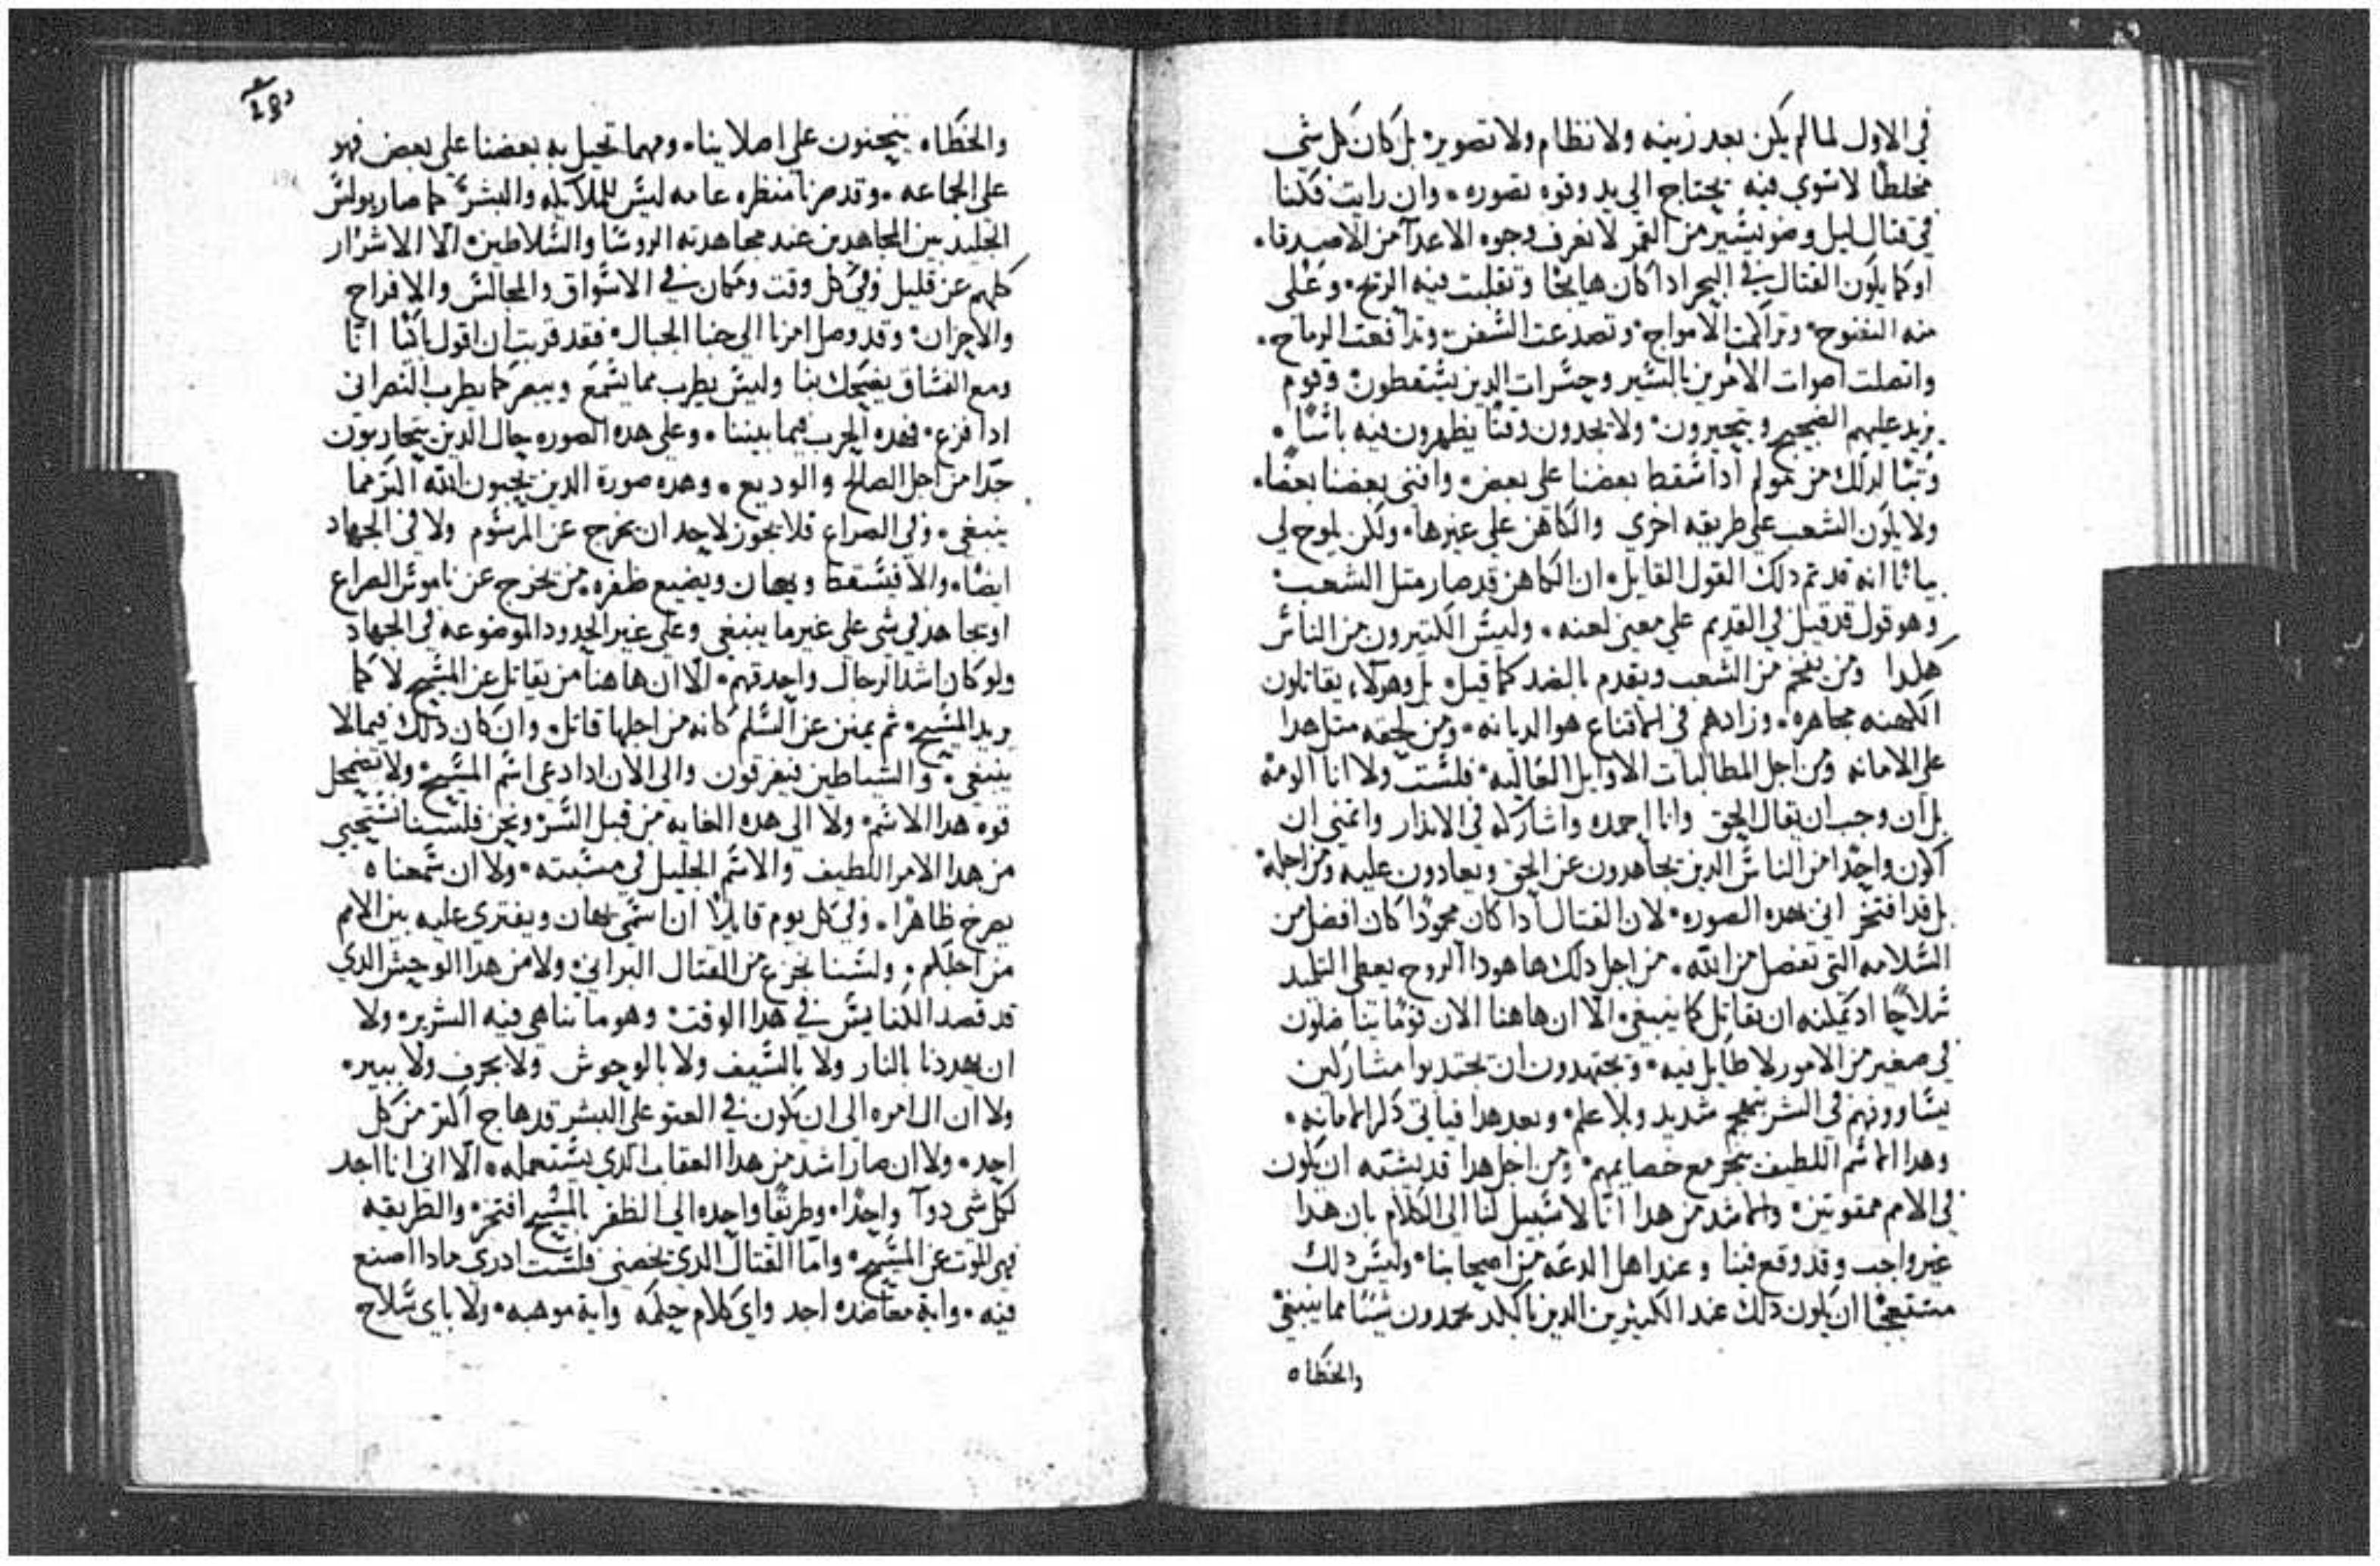 في الاول لما لم يكن بعد زينه ولا نظام ولا تصوير٠ بل كان كل شي
مخلطًا لاشوي فيه يحتاج الي يد وقوه تصوره٠ وان رايت فكنا
في قتال ليل وضو يسير من القمر لا نعرف وجوه الاعدآ من الاصدقا٠
او كما يكون القتال في البحر ادا كان هايجًا وتقلبت فيه الريح٠ وغلي
منه وتراكمت الامواج٠ وتصدعت السفن٠ وتدافعت الرماح٠
واتصلت اصوات الامرين بالسير وحسرات الدين يسقطون٠ وقوم
يزيد عليهم الضجيج ويتحيرون٠ ولا يجدون وقتًا يظهرون فيه باسًا٠
وتبًا لدلك من ادا سقط بعضنا علي بعض٠ وافني بعضنا بعضًا٠
ولا يكون الشعب علي طريقه اخري والكاهن علي غيرها٠ ولكن يلوح لي
بيانًا انه قد تم دلك القول القايل٠ ان الكاهن قد صار متل الشعب٠
وهو قول قد قيل في القديم علي معني لعنه٠ وليس الكتيرون من الناس
هكدا ومن يفخم من الشعب ويقدم بالضد كما قيل٠ بل وهولاء يقاتلون
الكهنه مجاهره٠ وزادهم في الاقناع هو الديانه٠ ومن لحقه متل هدا
علي الامانه ومن اجل المطالبات الاوايل العاليه٠ فلست ولا انا الومه
بل ان وجب ان يقال الحق وانا احمده واشاركه في الاندار واتمني ان
اكون واحدًا من الناس الدين يجاهدون عن الحق ويعادون عليه ومن اجله٠
بل قد افتخر اني بهده الصوره٠ لان القتال ادا كان محمودًا كان افضل من
السلامه التي تفصل من الله٠ من اجل دلك ها هودا الروح يعطي التلميد
سلاحًا اد يمكنه ان يقاتل كما ينبغي٠ الا ان هاهنا الان قومًا يتناضلون
في صغير من الامور لا طايل فيه٠ ويجتهدون ان يجتدبوا مشاركين
يساوونهم في الشر بتهجم شديد وبلا علم٠ وبعد هدا فياتي دكر الامانه٠
وهدا الاسم اللطيف ينجر مع خصايمهم٠ ومن اجل هدا قد يشته ان نكون
في الامم ممقوتين٠ والاشد من هدا انّا لا سبيل لنا الي الكلام بان هدا
غير واجب وقد وقع فينا وعند اهل الدعه من اصحابنا٠ وليس دلك
مستبعجًا ان يكون دلك عند الكتيرين الدين بالكد يحمدون شيئًا مما ينبغي
والخطاه
والخطاه يتجنون علي اصلابنا٠ ومهما تحيل به بعضنا علي بعض فهو
علي الجماعه٠ وقد صرنا منظره عامه ليس للملايكه والبشر كما صار بولس
الجليد بين المجاهدين عند مجاهدته الروسا والسلاطين٠ الّا الاشرار
كلهم عن قليل وفي كل وقت ومكان في الاسواق والمجالس والافراح
والاحزان٠ وقد وصل امرنا الي خبا الجبال٠ فقد قربت ان اقول باكيًا انّا
ومع الفساق يضحك بنا وليس يطرب مما يسمع ويبصر كما يطرب النصراني
ادا فزع٠ فهده الحرب فيما بيننا٠ وعلي هده الصوره حال الدين يتحاربون
جدًا من اجل الصالح والوديع٠ وهده صورة الدين يحبون الله اكتر مما
ينبغي٠ وفي الصراع فلا يجوز لاحد ان يخرج عن المرسوم ولا في الجهاد
ايضًا٠ والا فيسقط ويهان ويضيع ظفره٠ من يخرج عن ناموس الصراع
او يجاهد في شي علي غير ما ينبغي وعلي غير الحدود الموضوعه في الجهاد
ولو كان اشد الرجال واحدقهم٠ الّا ان هاهنا من يقاتل عن المسيح لا كما
يريد المسيح٠ تم يمتن عن السلم كانه من اجلها قاتل٠ وان كان دلك فيما لا
ينبغي٠ والشياطين فيفرقون والي الان ادا دعي اسم المسيح٠ ولا تضمحل
قوه هدا الاسم٠ ولا الي هده الغايه من قبل الشر٠ ونحن فلسنا نستحيي
من هدا الامر اللطيف والاسم الجليل في مسبته٠ ولا ان سمعناه
يصرخ ظاهرًا٠ وفي كل يوم قايلًا ان اسمي يهان ويفتري عليه بين الامم
من اجلكم٠ ولسنا نجزع من القتال البراني٠ ولا من هدا الوحش الدي
قد قصد الكنايس في هدا الوقت٠ وهو ما تناهي فيه الشرير٠ ولا
ان يهددنا بالنار ولا بالسيف ولا بالوحوش ولا بجرف ولا ببير٠
ولا ان الي ان يكون في العتو علي البشر قد هاج اكتر من كل
احد٠ ولا ان صار اشد من هدا العقاب الدي يستعمله٠ الّا اني انا اجد
لكل شي دوآ واحدًا٠ وطريقًا واحده الي الظفر بالمسيح افتخر٠ والطريقه
فهي الموت عن المسيح٠ وامّا القتال الدي يخصني فلست ادري مادا اصنع
فيه٠ واية معاضده اجد واي كلام حكمه واية موهبه٠ ولا باي سلاح